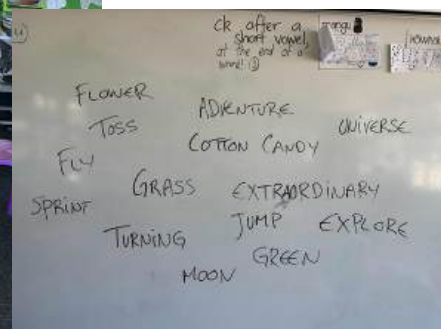 ck after a
short vowel,
at the end of a
word! ☺
FLOWER
ADVENTURE
TOSS
UNIVERSE
COTTON CANDY
FLY
GRASS
EXTRAORDINARY
SPRINT
JUMP
EXPLORE
TURNING
GREEN
MOON